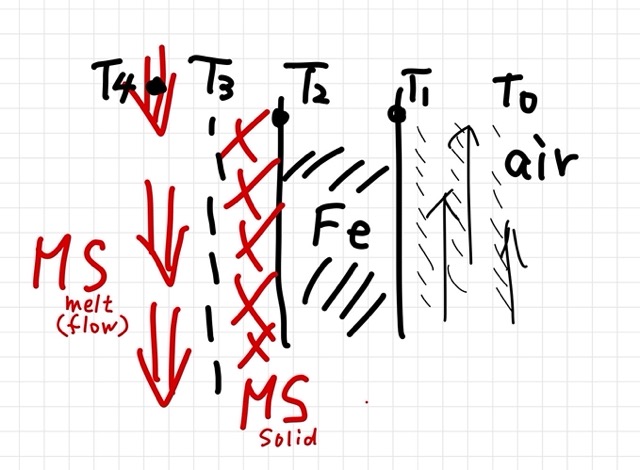 T4 T3 T2 T1 T0
air
Fe
MS
melt
(flow)
MS
Solid